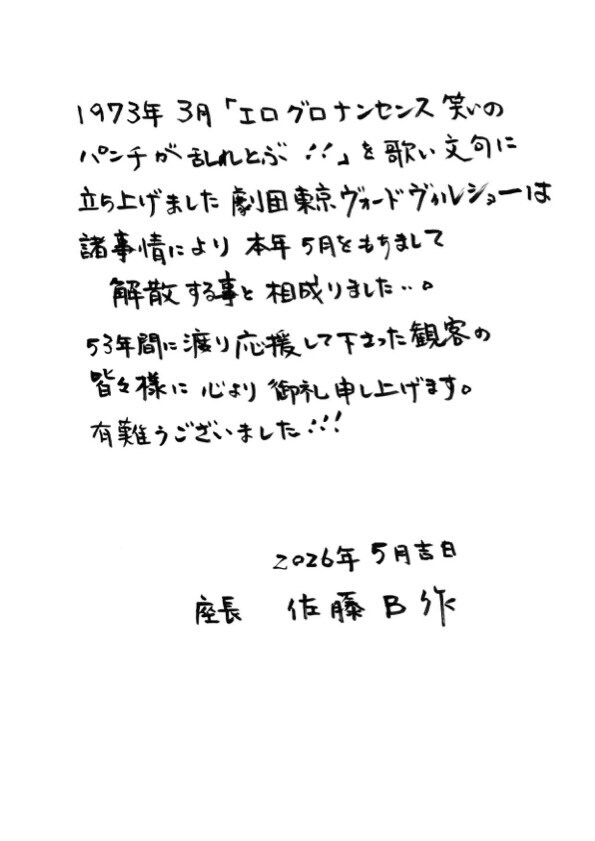 1973年 3月「エログロナンセンス 笑いの
パンチが乱れとぶ!!」を歌い文句に
立ち上げました 劇団東京ヴォードヴィルショーは
諸事情により 本年5月をもちまして
解散する事と相成りました…。
53年間に渡り応援して下さった観客の
皆々様に 心より 御礼申し上げます。
有難うございました!!!
2026年 5月吉日
座長 佐藤B作